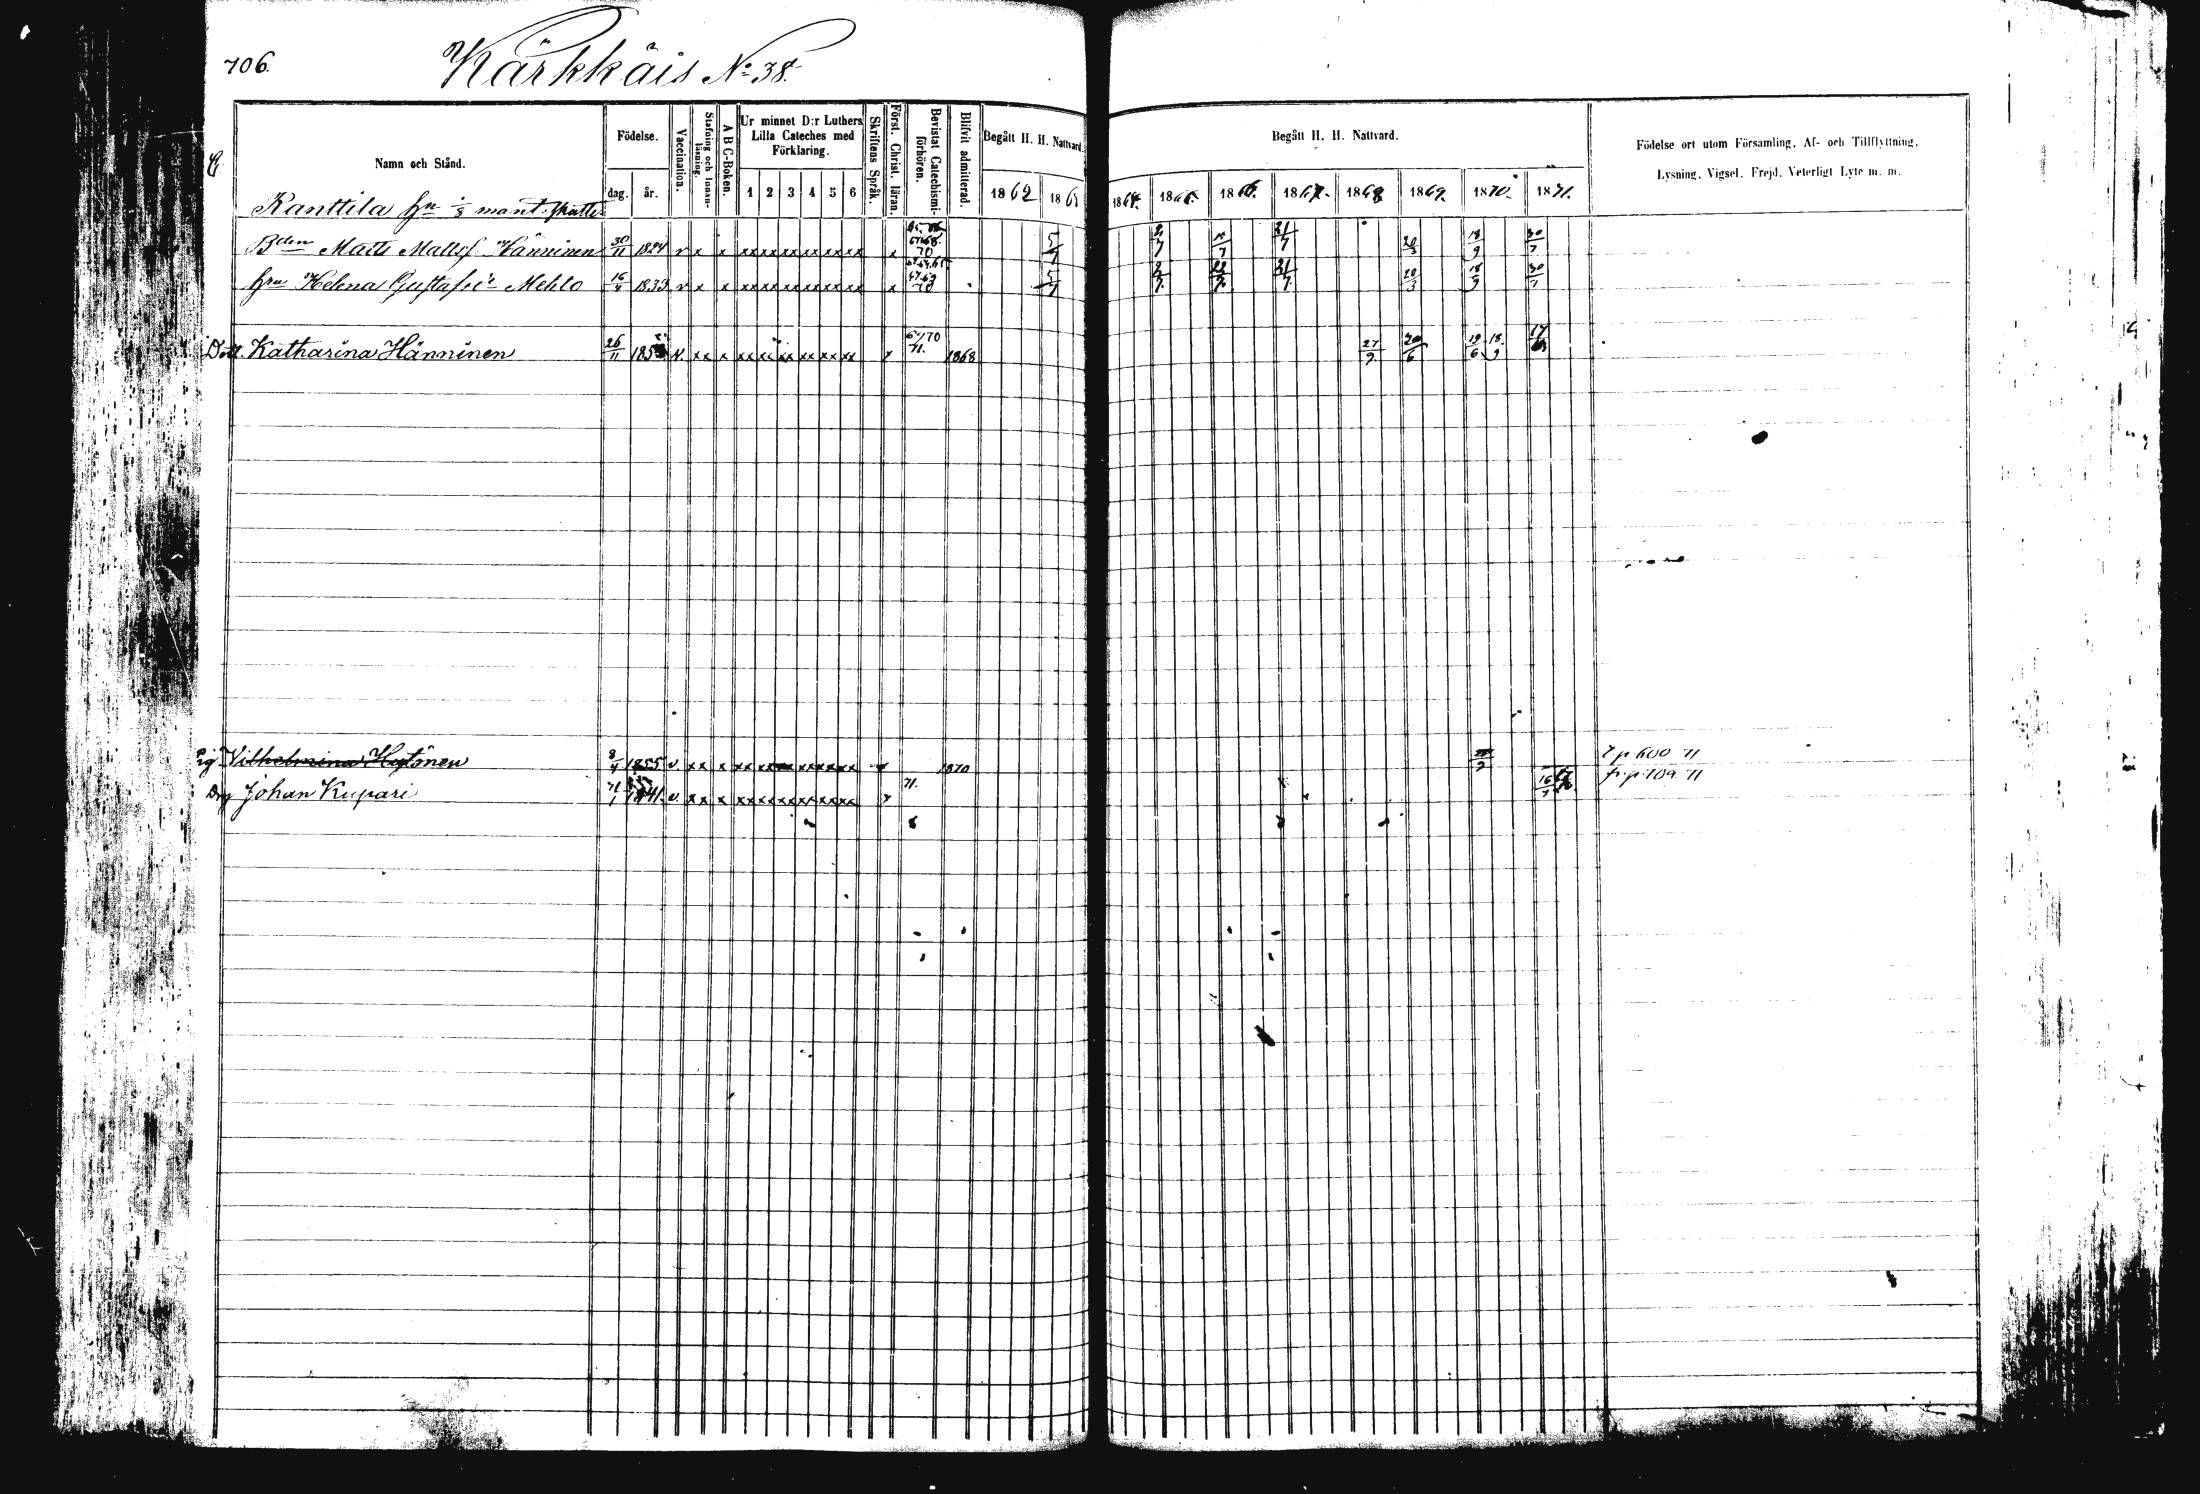 706.
Kärkkäis No 38.
Namn och Stånd.
Födelse.
dag.
år.
Vaccination.
Stafning och Innanläsning.
A B C-Boken.
Ur minnet D:r Luthers Lilla Cateches med Förklaring.
1 2 3 4 5 6
Skriftens Språk.
Först. Christ. läran.
Bevistat Catechismiförhören.
Blifvit admitterad.
Begått H. H. Nattvard.
1862 186
Begått H. H. Nattvard.
1864. 1865. 1866. 1867. 1868 1869. 1870. 1871.
Födelse ort utom Församling, Af- och Tillflyttning,
Lysning, Vigsel, Frejd, Veterligt Lyte m. m.
Kanttila hn 1/8 mant. skatte
Bden Matts Mattsf. Hänninen 30/11 1824 v x x xx xx xx xx xx xx x 70 5/7 2/7 21/7 20/3 18/9 30/7
hru Helena Gustafsdr Mehto 16/4 1833 v x x xx xx xx xx xx xx x 70 5/7 2/7 21/7 20/3 18/9 30/7
Dott. Katharina Hänninen 26/11 185 v. xx x xx xx xx xx xx xx x 70 71. 1868 27/9. 20/6 19/6 18/9 17
Pig Vilhelmina Hytönen 8/4 1855 v. xx x xx xx xx xx xx xx x 1870 t. p. 600 71
Drg Johan Kupari 1841. v. xx x xx xx xx xx xx xx x 71. 16/7 fr. p. 109 71